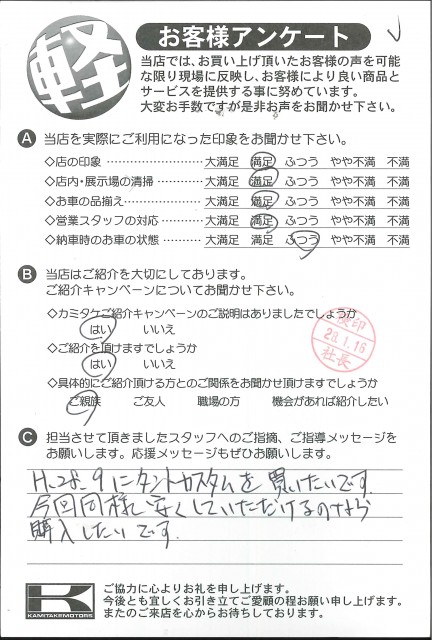 軽
お客様アンケート
当店では、お買い上げ頂いたお客様の声を可能
な限り現場に反映し、お客様により良い商品と
サービスを提供する事に努めています。
大変お手数ですが是非お声をお聞かせ下さい。
A 当店を実際にご利用になった印象をお聞かせ下さい。
◇店の印象 ……………………… 大満足 満足 ふつう やや不満 不満
◇店内・展示場の清掃 ………… 大満足 満足 ふつう やや不満 不満
◇お車の品揃え………………… 大満足 満足 ふつう やや不満 不満
◇営業スタッフの対応 ………… 大満足 満足 ふつう やや不満 不満
◇納車時のお車の状態 ………… 大満足 満足 ふつう やや不満 不満
B 当店はご紹介を大切にしております。
ご紹介キャンペーンについてお聞かせ下さい。
◇カミタケご紹介キャンペーンのご説明はありましたでしょうか
はい いいえ
◇ご紹介を頂けますでしょうか
はい いいえ
◇具体的にご紹介頂ける方とのご関係をお聞かせ頂けますでしょうか
ご親族 ご友人 職場の方 機会があれば紹介したい
印
28.1.16
社長
C 担当させて頂きましたスタッフへのご指摘、ご指導メッセージを
お願いします。応援メッセージもぜひお願いします。
H.28.9にタントカスタムを買いたいです。
今回同様に安くしていただけるのなら
購入したいです。
K
KAMITAKE MOTORS
ご協力に心よりお礼を申し上げます。
今後とも宜しくお引き立てご愛顧の程お願い申し上げます。
またのご来店を心からお待ちしております。